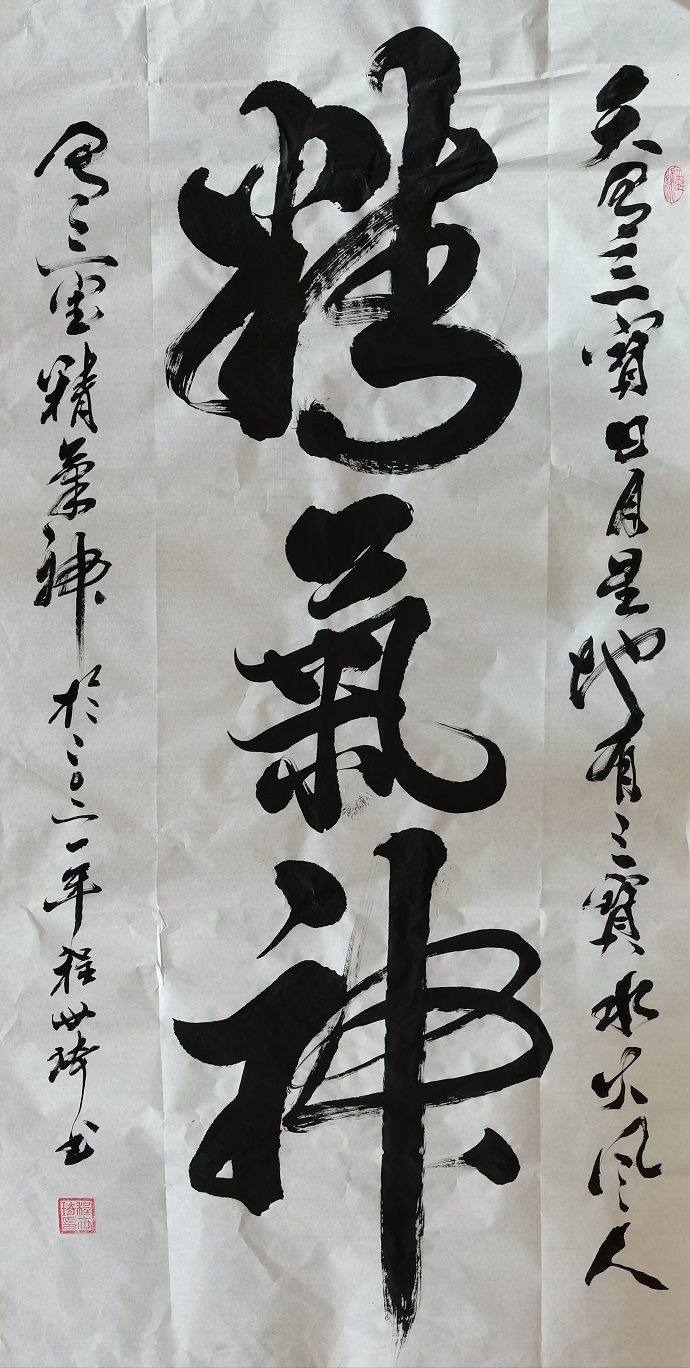 天有三寶日月星地有三寶水火風人
精氣神
有三寶精氣神於二〇二一年程世琦书